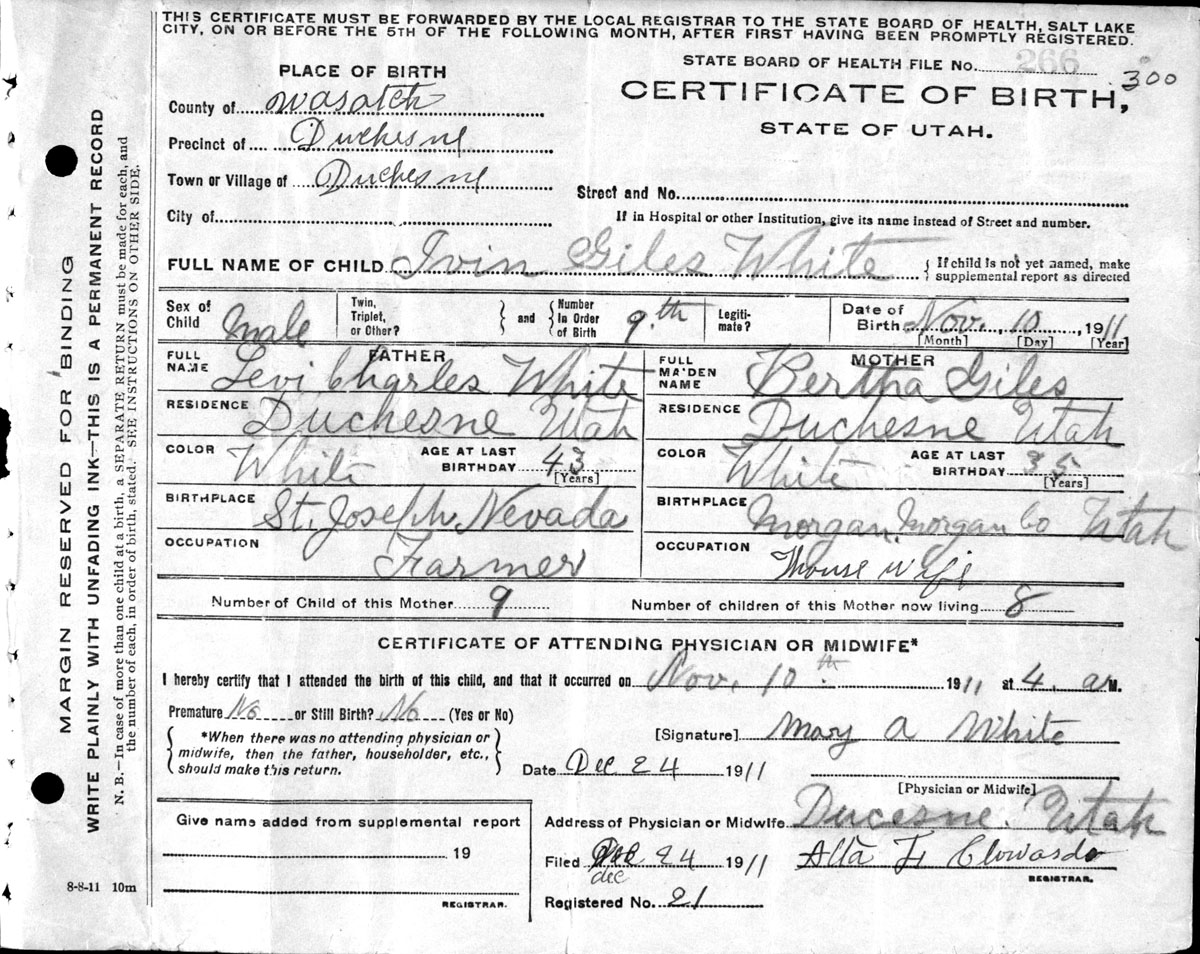 THIS CERTIFICATE MUST BE FORWARDED BY THE LOCAL REGISTRAR TO THE STATE BOARD OF HEALTH, SALT LAKE
CITY, ON OR BEFORE THE 5TH OF THE FOLLOWING MONTH, AFTER FIRST HAVING BEEN PROMPTLY REGISTERED.
STATE BOARD OF HEALTH FILE NO. 266 300
PLACE OF BIRTH
CERTIFICATE OF BIRTH,
STATE OF UTAH.
County of Wasatch
Precinct of Duchesne
Town or Village of Duchesne
Street and No.
City of
If in Hospital or other Institution, give its name instead of Street and number.
FULL NAME OF CHILD Ivin Giles White { If child is not yet named, make
supplemental report as directed
Sex of Child Male
Twin, Triplet, or Other? } and { Number In Order of Birth 9th
Legiti-mate?
Date of Birth Nov. 10, 1911
[Month] [Day] [Year]
FATHER
FULL NAME Levi Charles White
MOTHER
FULL MA'DEN NAME Bertha Giles
RESIDENCE Duchesne Utah
RESIDENCE Duchesne Utah
COLOR White AGE AT LAST BIRTHDAY 43 [Years]
COLOR White AGE AT LAST BIRTHDAY 35 [Years]
BIRTHPLACE St. Joseph Nevada
BIRTHPLACE Morgan, Morgan Co Utah
OCCUPATION Farmer
OCCUPATION House wife
Number of Child of this Mother 9 Number of children of this Mother now living 8
CERTIFICATE OF ATTENDING PHYSICIAN OR MIDWIFE*
I hereby certify that I attended the birth of this child, and that it occurred on Nov. 10th 1911 at 4 a M.
Premature No or Still Birth? No (Yes or No)
{ *When there was no attending physician or
midwife, then the father, householder, etc.,
should make this return. }
[Signature] Mary A White
Date Dec 24 1911
[Physician or Midwife]
Give name added from supplemental report
19
REGISTRAR.
Address of Physician or Midwife Ducesne. Utah
Filed Dec 24 1911
dec
REGISTRAR.
Registered No. 21
8-8-11 10m
MARGIN RESERVED FOR BINDING
WRITE PLAINLY WITH UNFADING INK—THIS IS A PERMANENT RECORD
N. B.—In case of more than one child at a birth, a SEPARATE RETURN must be made for each, and
the number of each, in order of birth, stated. SEE INSTRUCTIONS ON OTHER SIDE.